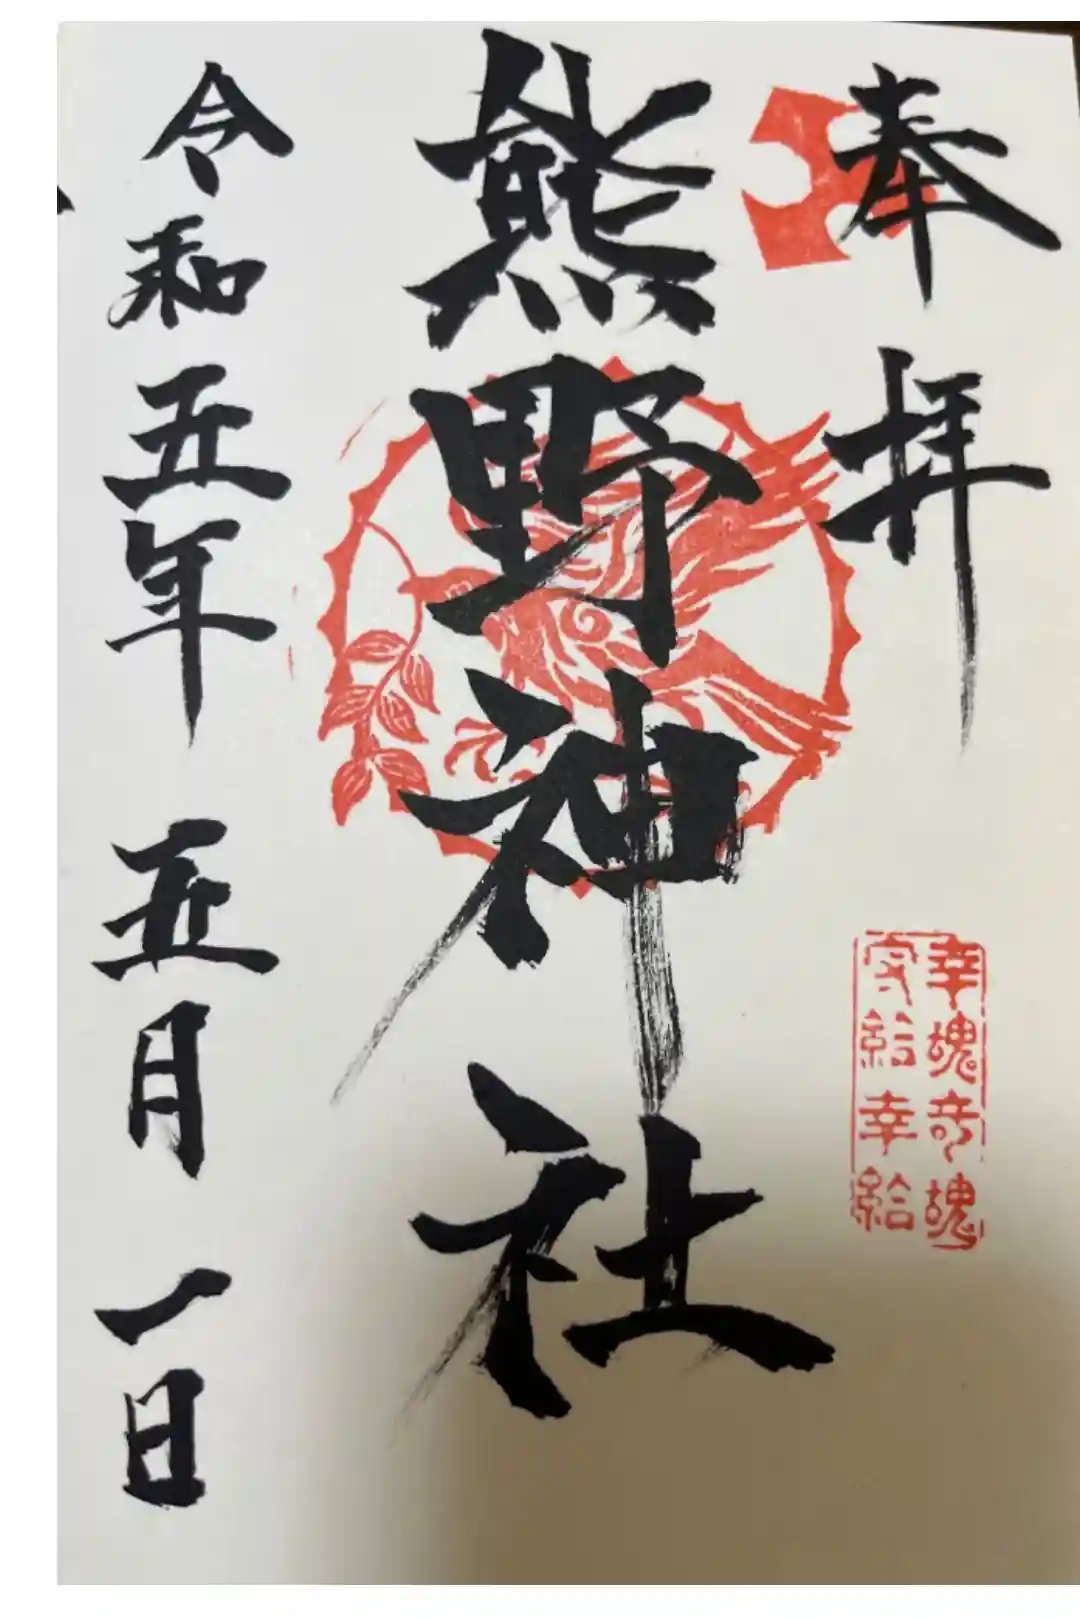 奉拝
幸魂奇魂
守給幸給
熊野神社
令和五年五月一日